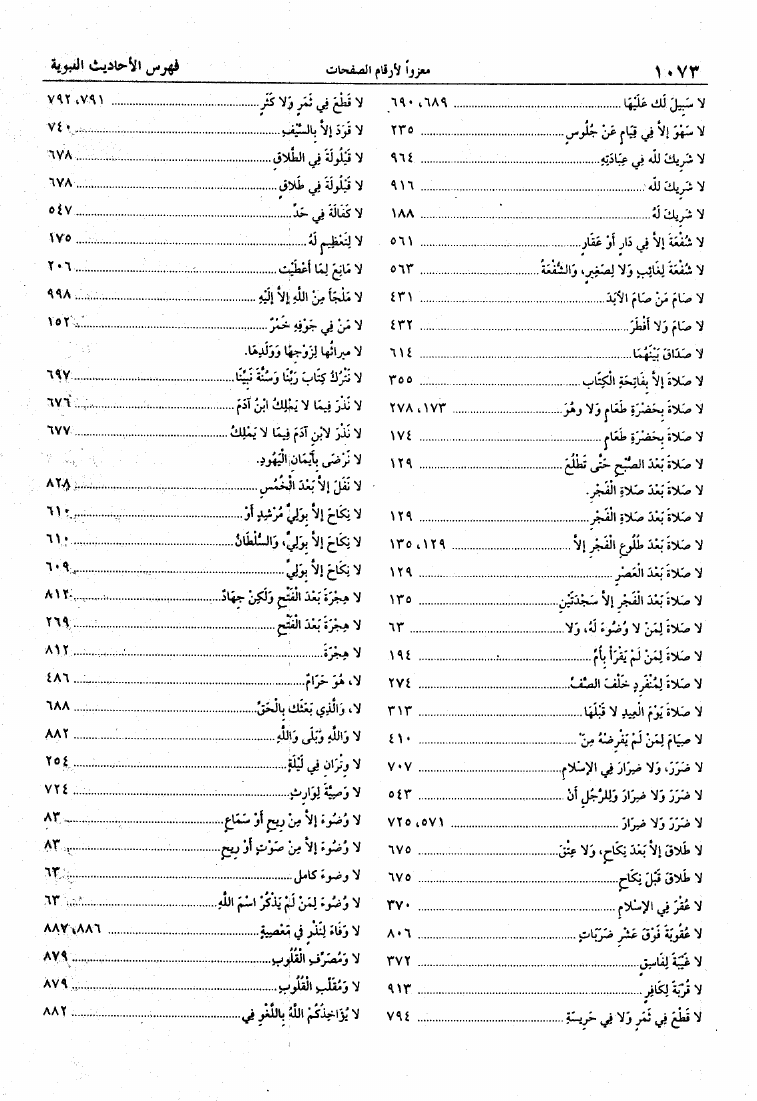 ١٠٧٣ معزواً لأرقام الصفحات فهرس الأحاديث النبوية
لا سَبِيلَ لَك عَلَيْهَا ٦٨٩، ٦٩٠
لا سَهْوَ إلاَّ فِي قِيَامٍ عَنْ جُلُوسٍ ٢٣٥
لا شَرِيكَ لله فِي عِبَادَتِهِ ٩٦٤
لا شَرِيكَ لله ٩١٦
لا شَرِيكَ لَهُ ١٨٨
لا شُفْعَةَ إلاَّ فِي دَارٍ أَوْ عَقَارٍ ٥٦١
لا شُفْعَةَ لِغَائِبٍ وَلا لِصَغِيرٍ، وَالشُّفْعَةُ ٥٦٣
لا صَامَ مَنْ صَامَ الأَبَدَ ٤٣١
لا صَامَ وَلا أَفْطَرَ ٤٣٢
لا صَدَاقَ بَيْنَهُمَا ٦١٤
لا صَلاةَ إلاَّ بِفَاتِحَةِ الْكِتَابِ ٣٥٥
لا صَلاةَ بِحَضْرَةِ طَعَامٍ وَلا وهُوَ ١٧٣، ٢٧٨
لا صَلاةَ بِحَضْرَةِ طَعَامٍ ١٧٤
لا صَلاةَ بَعْدَ الصُّبْحِ حَتَّى تَطْلُعَ ١٢٩
لا صَلاةَ بَعْدَ صَلاةِ الْفَجْرِ.
لا صَلاةَ بَعْدَ صَلاةِ الْفَجْرِ ١٢٩
لا صَلاةَ بَعْدَ طُلُوعِ الْفَجْرِ إلاَّ ١٢٩، ١٣٥
لا صَلاةَ بَعْدَ الْعَصْرِ ١٢٩
لا صَلاةَ بَعْدَ الْفَجْرِ إلاَّ سَجْدَتَيْنِ ١٣٥
لا صَلاةَ لِمَنْ لا وُضُوءَ لَهُ، وَلا ٦٣
لا صَلاةَ لِمَنْ لَمْ يَقْرَأْ بِأُمِّ ١٩٤
لا صَلاةَ لِمُنْفَرِدٍ خَلْفَ الصَّفِّ ٢٧٤
لا صَلاةَ يَوْمَ الْعِيدِ لا قَبْلَهَا ٣١٣
لا صِيَامَ لِمَنْ لَمْ يَفْرِضْهُ مِنْ ٤١٠
لا ضَرَرَ، وَلا ضِرَارَ فِي الإِسْلامِ ٧٠٧
لا ضَرَرَ وَلا ضِرَارَ وَلِلرَّجُلِ أَنْ ٥٤٣
لا ضَرَرَ وَلا ضِرَارَ ٥٧١، ٧٢٥
لا طَلاقَ إلاَّ بَعْدَ نِكَاحٍ، وَلا عِتْقَ ٦٧٥
لا طَلاقَ قَبْلَ نِكَاحٍ ٦٧٥
لا عُقْرَ فِي الإِسْلامِ ٣٧٠
لا عُقُوبَةَ فَوْقَ عَشْرِ ضَرَبَاتٍ ٨٠٦
لا غَيْبَةَ لِفَاسِقٍ ٣٧٢
لا قُرْبَةَ لِكَافِرٍ ٩١٣
لا قَطْعَ فِي ثَمَرٍ وَلا فِي حَرِيسَةِ ٧٩٤
لا قَطْعَ فِي ثَمَرٍ وَلا كَثَرٍ ٧٩١، ٧٩٢
لا قَوَدَ إلاَّ بِالسَّيْفِ ٧٤٠
لا قَيْلُولَةَ فِي الطَّلاقِ ٦٧٨
لا قَيْلُولَةَ فِي طَلاقٍ ٦٧٨
لا كَفَالَةَ فِي حَدٍّ ٥٤٧
لا لِتَعْظِيمٍ لَهُ ١٧٥
لا مَانِعَ لِمَا أَعْطَيْت ٢٠٦
لا مَلْجَأَ مِنْ اللَّهِ إلاَّ إلَيْهِ ٩٩٨
لا مَنْ فِي جَوْفِهِ خَمْرٌ ١٥٢
لا ميراثُها لِزَوْجِهَا وَوَلَدِهَا.
لا نَتْرُكُ كِتَابَ رَبِّنَا وَسُنَّةَ نَبِيِّنَا ٦٩٧
لا نَذْرَ فِيمَا لا يَمْلِكُ ابْنُ آدَمَ ٦٧٦
لا نَذْرَ لابْنِ آدَمَ فِيمَا لا يَمْلِكُ ٦٧٧
لا نَرْضَى بِأَيْمَانِ الْيَهُودِ.
لا نَفَلَ إلاَّ بَعْدَ الْخُمْسِ ٨٢٨
لا نِكَاحَ إلاَّ بِوَلِيٍّ مُرْشِدٍ أَوْ ٦١٠
لا نِكَاحَ إلاَّ بِوَلِيٍّ، وَالسُّلْطَانُ ٦١٠
لا نِكَاحَ إلاَّ بِوَلِيٍّ ٦٠٩
لا هِجْرَةَ بَعْدَ الْفَتْحِ وَلَكِنْ جِهَادٌ ٨١٢
لا هِجْرَةَ بَعْدَ الْفَتْحِ ٢٦٩
لا هِجْرَةَ ٨١٢
لا، هُوَ حَرَامٌ ٤٨٦
لا، وَالَّذِي بَعَثَك بِالْحَقِّ ٦٨٨
لا وَاَللَّهِ وَبَلَى وَاَللَّهِ ٨٨٢
لا وِتْرَانِ فِي لَيْلَةٍ ٢٥٤
لا وَصِيَّةَ لِوَارِثٍ ٧٢٤
لا وُضُوءَ إلاَّ مِنْ رِيحٍ أَوْ سَمَاعٍ ٨٣
لا وُضُوءَ إلاَّ مِنْ صَوْتٍ أَوْ رِيحٍ ٨٣
لا وضوءَ كامل ٦٣
لا وُضُوءَ لِمَنْ لَمْ يَذْكُرْ اسْمَ اللَّهِ ٦٣
لا وَفَاءَ لِنَذْرٍ فِي مَعْصِيَةٍ ٨٨٦، ٨٨٧
لا وَمُصَرِّفِ الْقُلُوبِ ٨٧٩
لا وَمُقَلِّبِ الْقُلُوبِ ٨٧٩
لا يُؤَاخِذُكُمْ اللَّهُ بِاللَّغْوِ فِي ٨٨٢